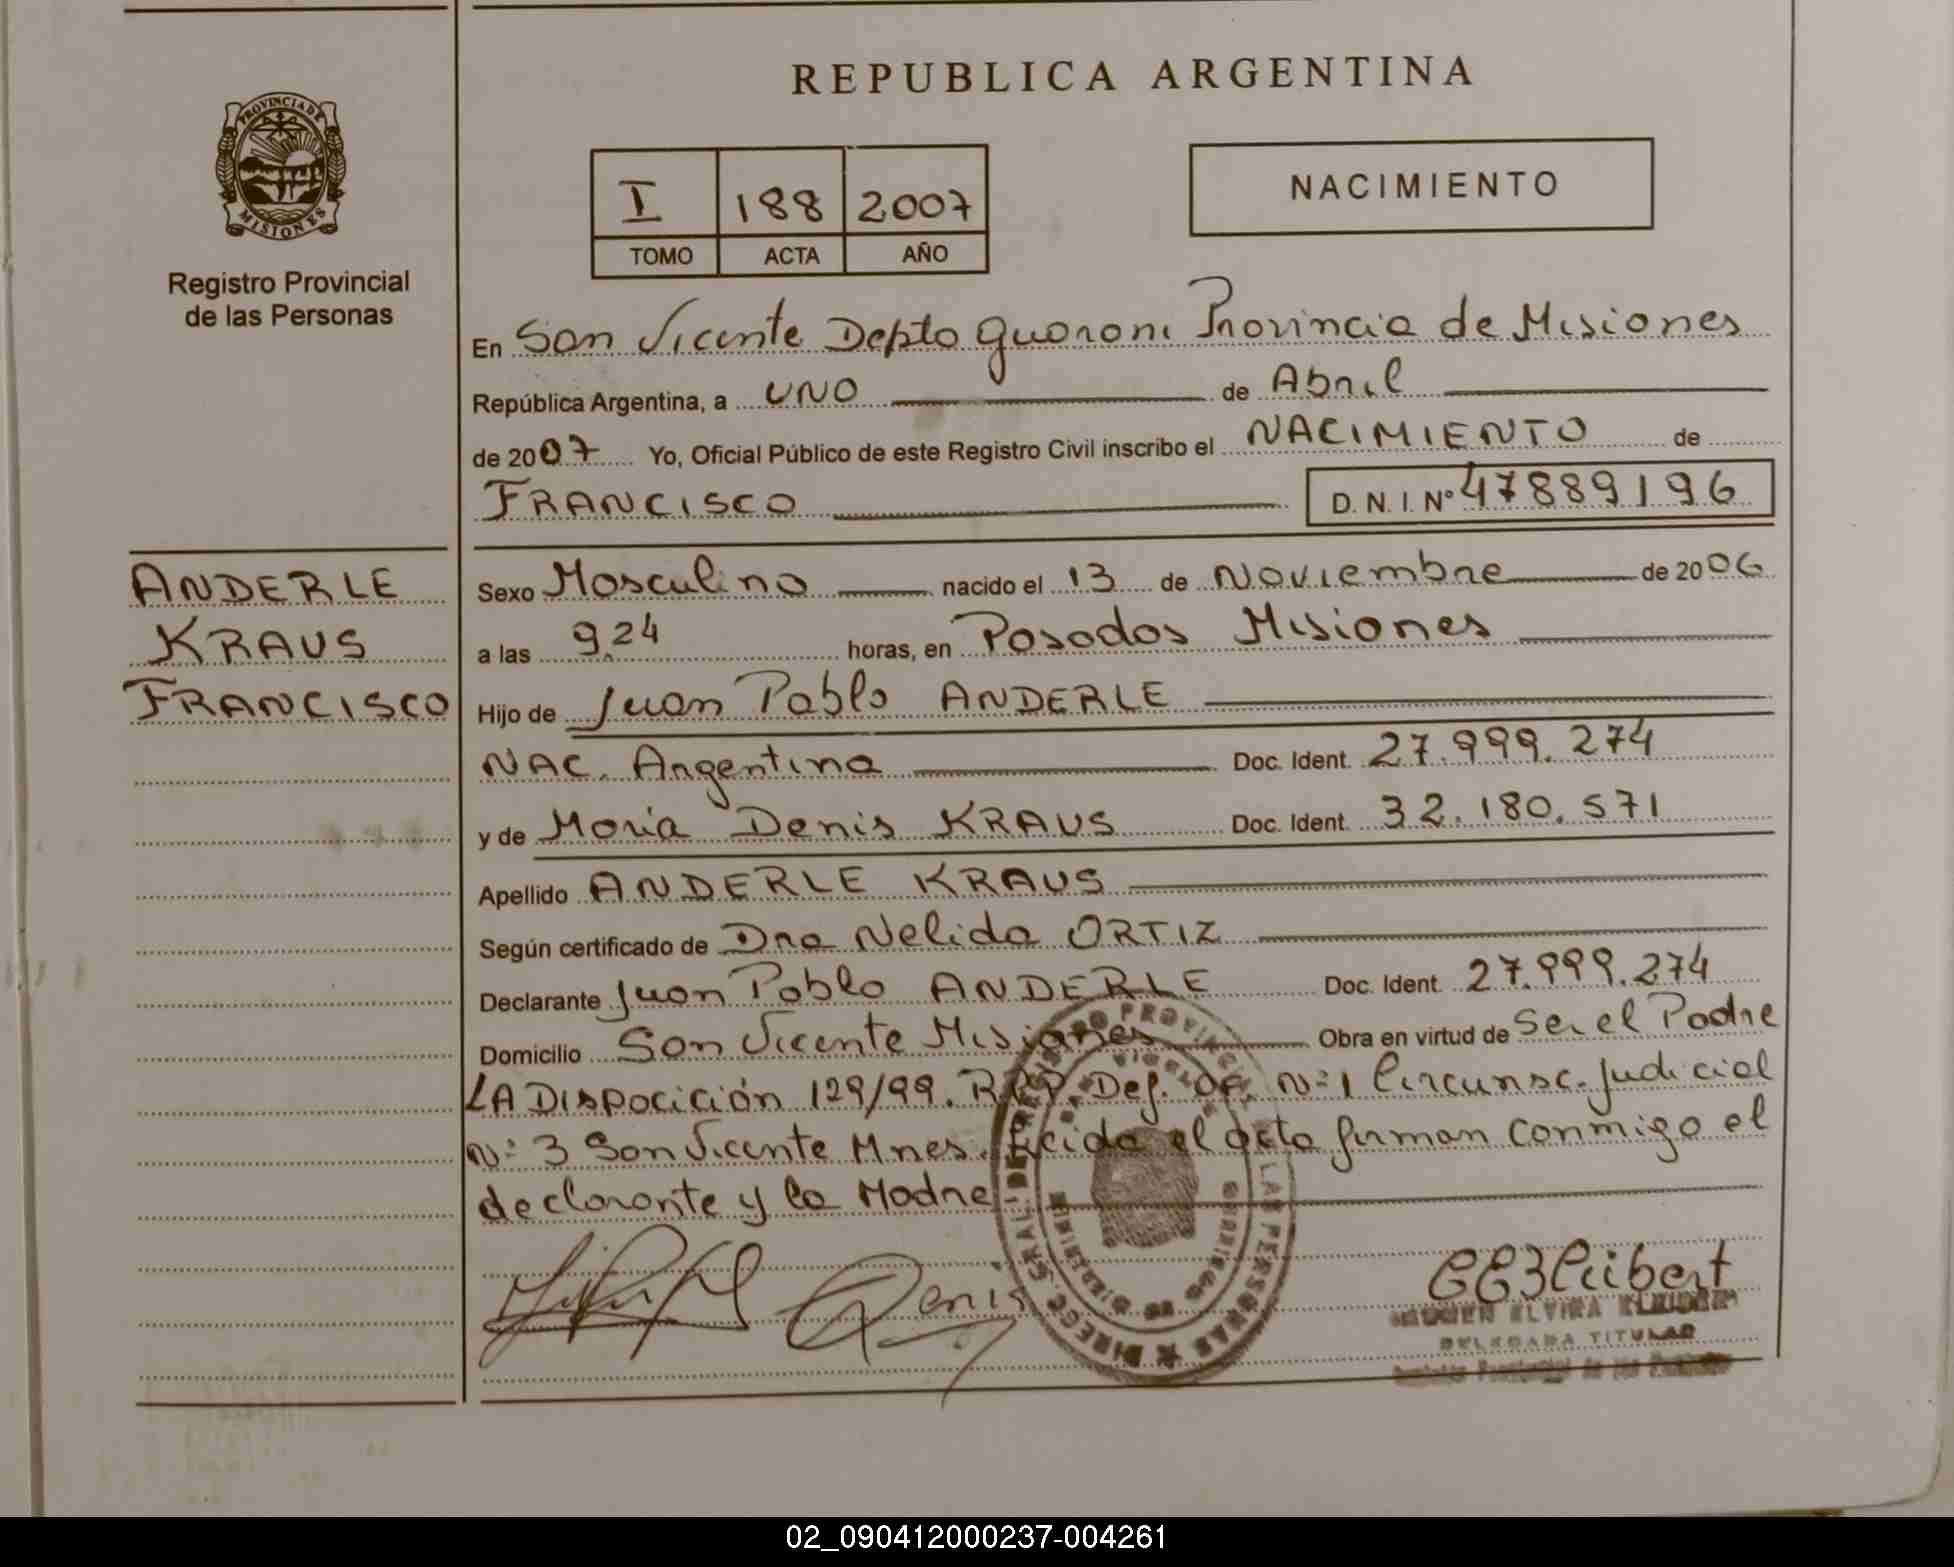 REPUBLICA ARGENTINA
PROVINCIA DE
MISIONES
Registro Provincial
de las Personas
I 188 2007
TOMO ACTA AÑO
NACIMIENTO
En San Vicente Depto Guarani Provincia de Misiones
República Argentina, a UNO de Abril
de 2007 Yo, Oficial Público de este Registro Civil inscribo el NACIMIENTO de
FRANCISCO D. N. I. Nº 47889196
ANDERLE
KRAUS
FRANCISCO
Sexo Masculino nacido el 13 de Noviembre de 2006
a las 9.24 horas, en Posadas Misiones
Hijo de Juan Pablo ANDERLE
NAC. Argentina Doc. Ident. 27.999.274
y de María Denis KRAUS Doc. Ident. 32.180.571
Apellido ANDERLE KRAUS
Según certificado de Dra Nelida ORTIZ
Declarante Juan Pablo ANDERLE Doc. Ident. 27.999.274
Domicilio San Vicente Misiones Obra en virtud de Ser el Padre
LA DISPOCICIÓN 129/99. RRP. Def. Of. Nº 1 Circunsc. Judicial
Nº 3 San Vicente Mnes. Leida el acta firman conmigo el
declarante y la Madre
Denis
DIRECC. GRAL. DE REGISTRO PROVINCIAL DE LAS PERSONAS
ELVIRA
DELEGADA TITULAR
02_090412000237-004261